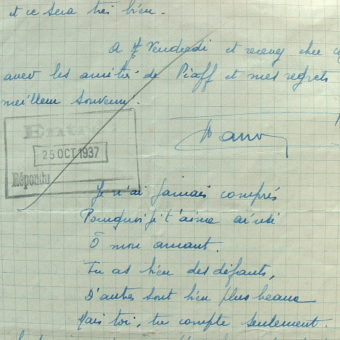 et ce sera très bien.
A Vendredi et recevez cher
avec les amitiés de Piaff et mes regrets
meilleur souvenir.
Entré
25 OCT 1937
Répondu
Je n'ai jamais compris
Pourquoi je t'aime ainsi
O mon amant.
Tu as bien des défauts,
D'autres sont bien plus beaux
Mais toi, tu compte seulement.